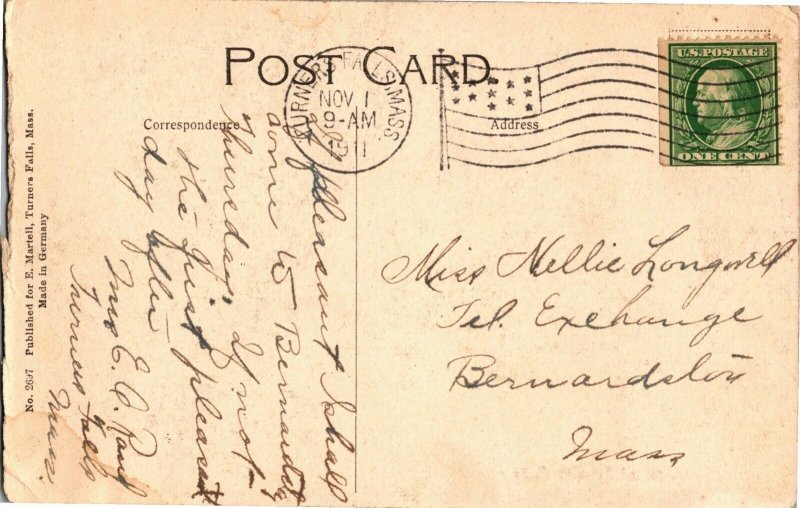 POST CARD
TURNERS FALLS, MASS.
NOV 1
9-AM
1911
U.S. POSTAGE
ONE CENT
Correspondence
Address
If pleasant I shall
come to Bernardston
Thursday. If not
the first pleasant
day after
Mrs E. O.
Turners Falls
Mass.
Miss Nellie Longwell
Tel. Exchange
Bernardston
Mass
No. 2697 Published for E. Martell, Turners Falls, Mass.
Made in Germany